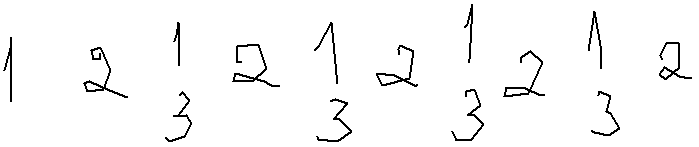 1 2 1 2 1 2 1 2 1 2
3 3 3 3